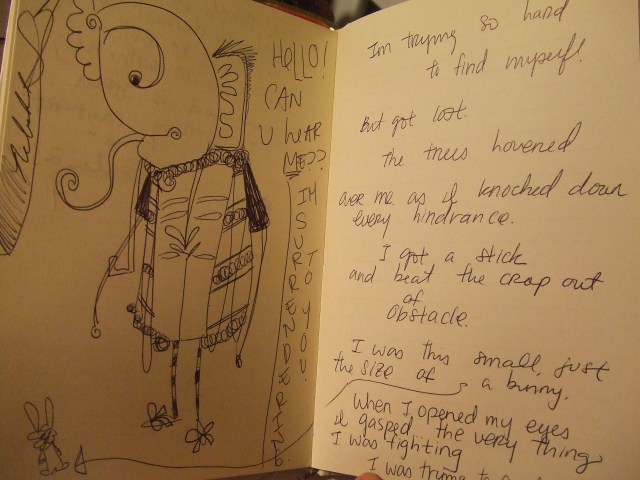 HELLO!
CAN
U HEAR
ME??
IM
SURRENDERED
TO YOU!
Im trying so hard
to find myself.
But got lost.
The trees hovered
over me as I knocked down
every hindrance.
I got a stick
and beat the crap out
of
obstacle.
I was this small, just
the size of a bunny.
When I opened my eyes
I gasped. The very thing
I was fighting
I was trying to